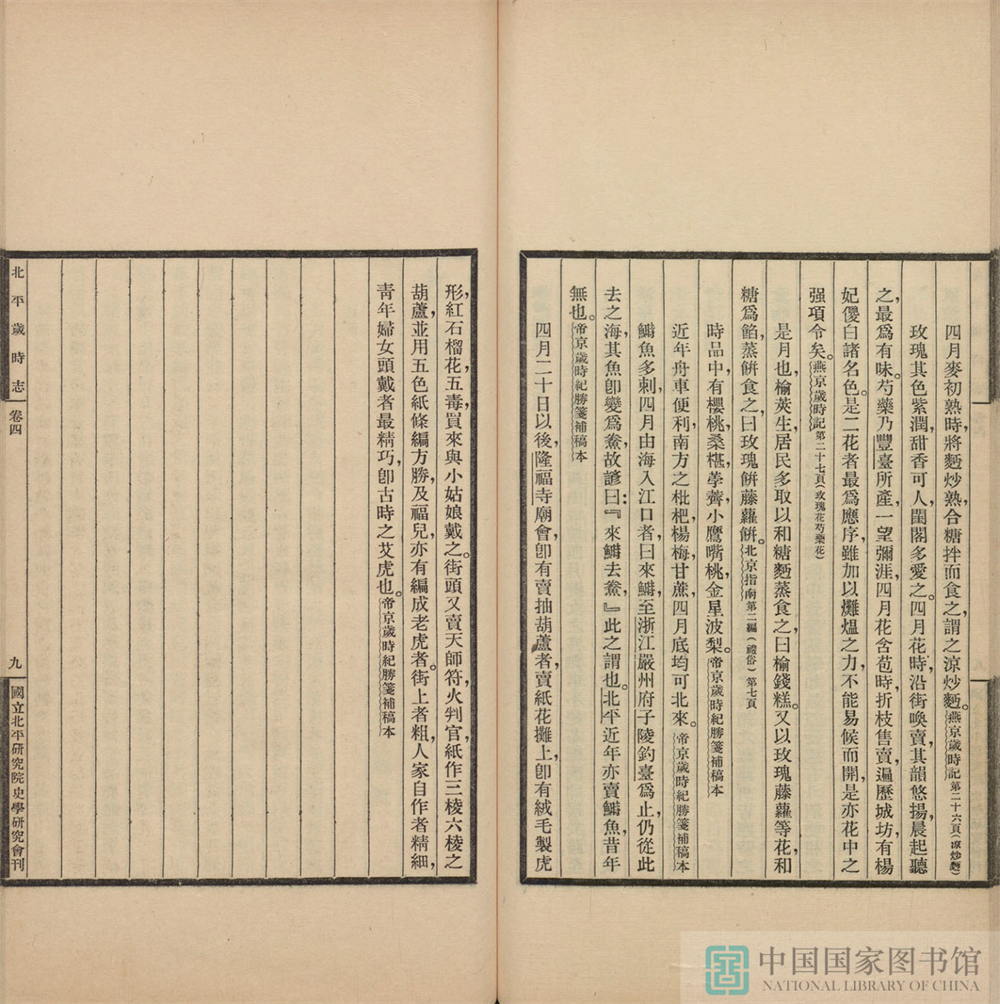 四月麥初熟時，將麪炒熟，合糖拌而食之，謂之涼炒麪。燕京歲時記第二十六頁（涼炒麪）
玫瑰其色紫潤，甜香可人，閨閣多愛之。四月花時，沿街喚賣，其韻悠揚，晨起聽
之，最爲有味。芍藥乃豐臺所產，一望彌涯，四月花含苞時，折枝售賣，遍歷城坊，有楊
妃儍白諸名色。是二花者，最爲應序，雖加以爁熅之力，不能易候而開，是亦花中之
强項令矣。燕京歲時記第二十七頁（玫瑰花芍藥花）
是月也，榆莢生，居民多取以和糖麪蒸食之，曰榆錢糕。又以玫瑰藤蘿等花，和
糖爲餡，蒸餅食之，曰玫瑰餅藤蘿餅。北京指南第二編（禮俗）第七頁
時品中，有櫻桃，桑椹，荸薺，小鷹嘴桃，金星波梨。帝京歲時紀勝箋補稿本
近年舟車便利，南方之枇杷，楊梅，甘蔗，四月底均可北來。帝京歲時紀勝箋補稿本
鰣魚多刺，四月由海入江口者，曰來鰣，至浙江嚴州府子陵釣臺爲止，仍從此
去之海，其魚卽變爲鮝，故諺曰：『來鰣去鮝，』此之謂也。北平近年亦賣鰣魚，昔年
無也。帝京歲時紀勝箋補稿本
四月二十日以後，隆福寺廟會，卽有賣抽葫蘆者，賣紙花攤上，卽有絨毛製虎
形，紅石榴花，五毒，買來與小姑娘戴之。街頭又賣天師符，火判官，紙作三棱六棱之
葫蘆，並用五色紙條編方勝，及福兒，亦有編成老虎者。街上者粗，人家自作者精細，
靑年婦女頭戴者最精巧，卽古時之艾虎也。帝京歲時紀勝箋補稿本
北平歲時志
卷四
九
國立北平研究院史學研究會刊
中国国家图书馆
NATIONAL LIBRARY OF CHINA